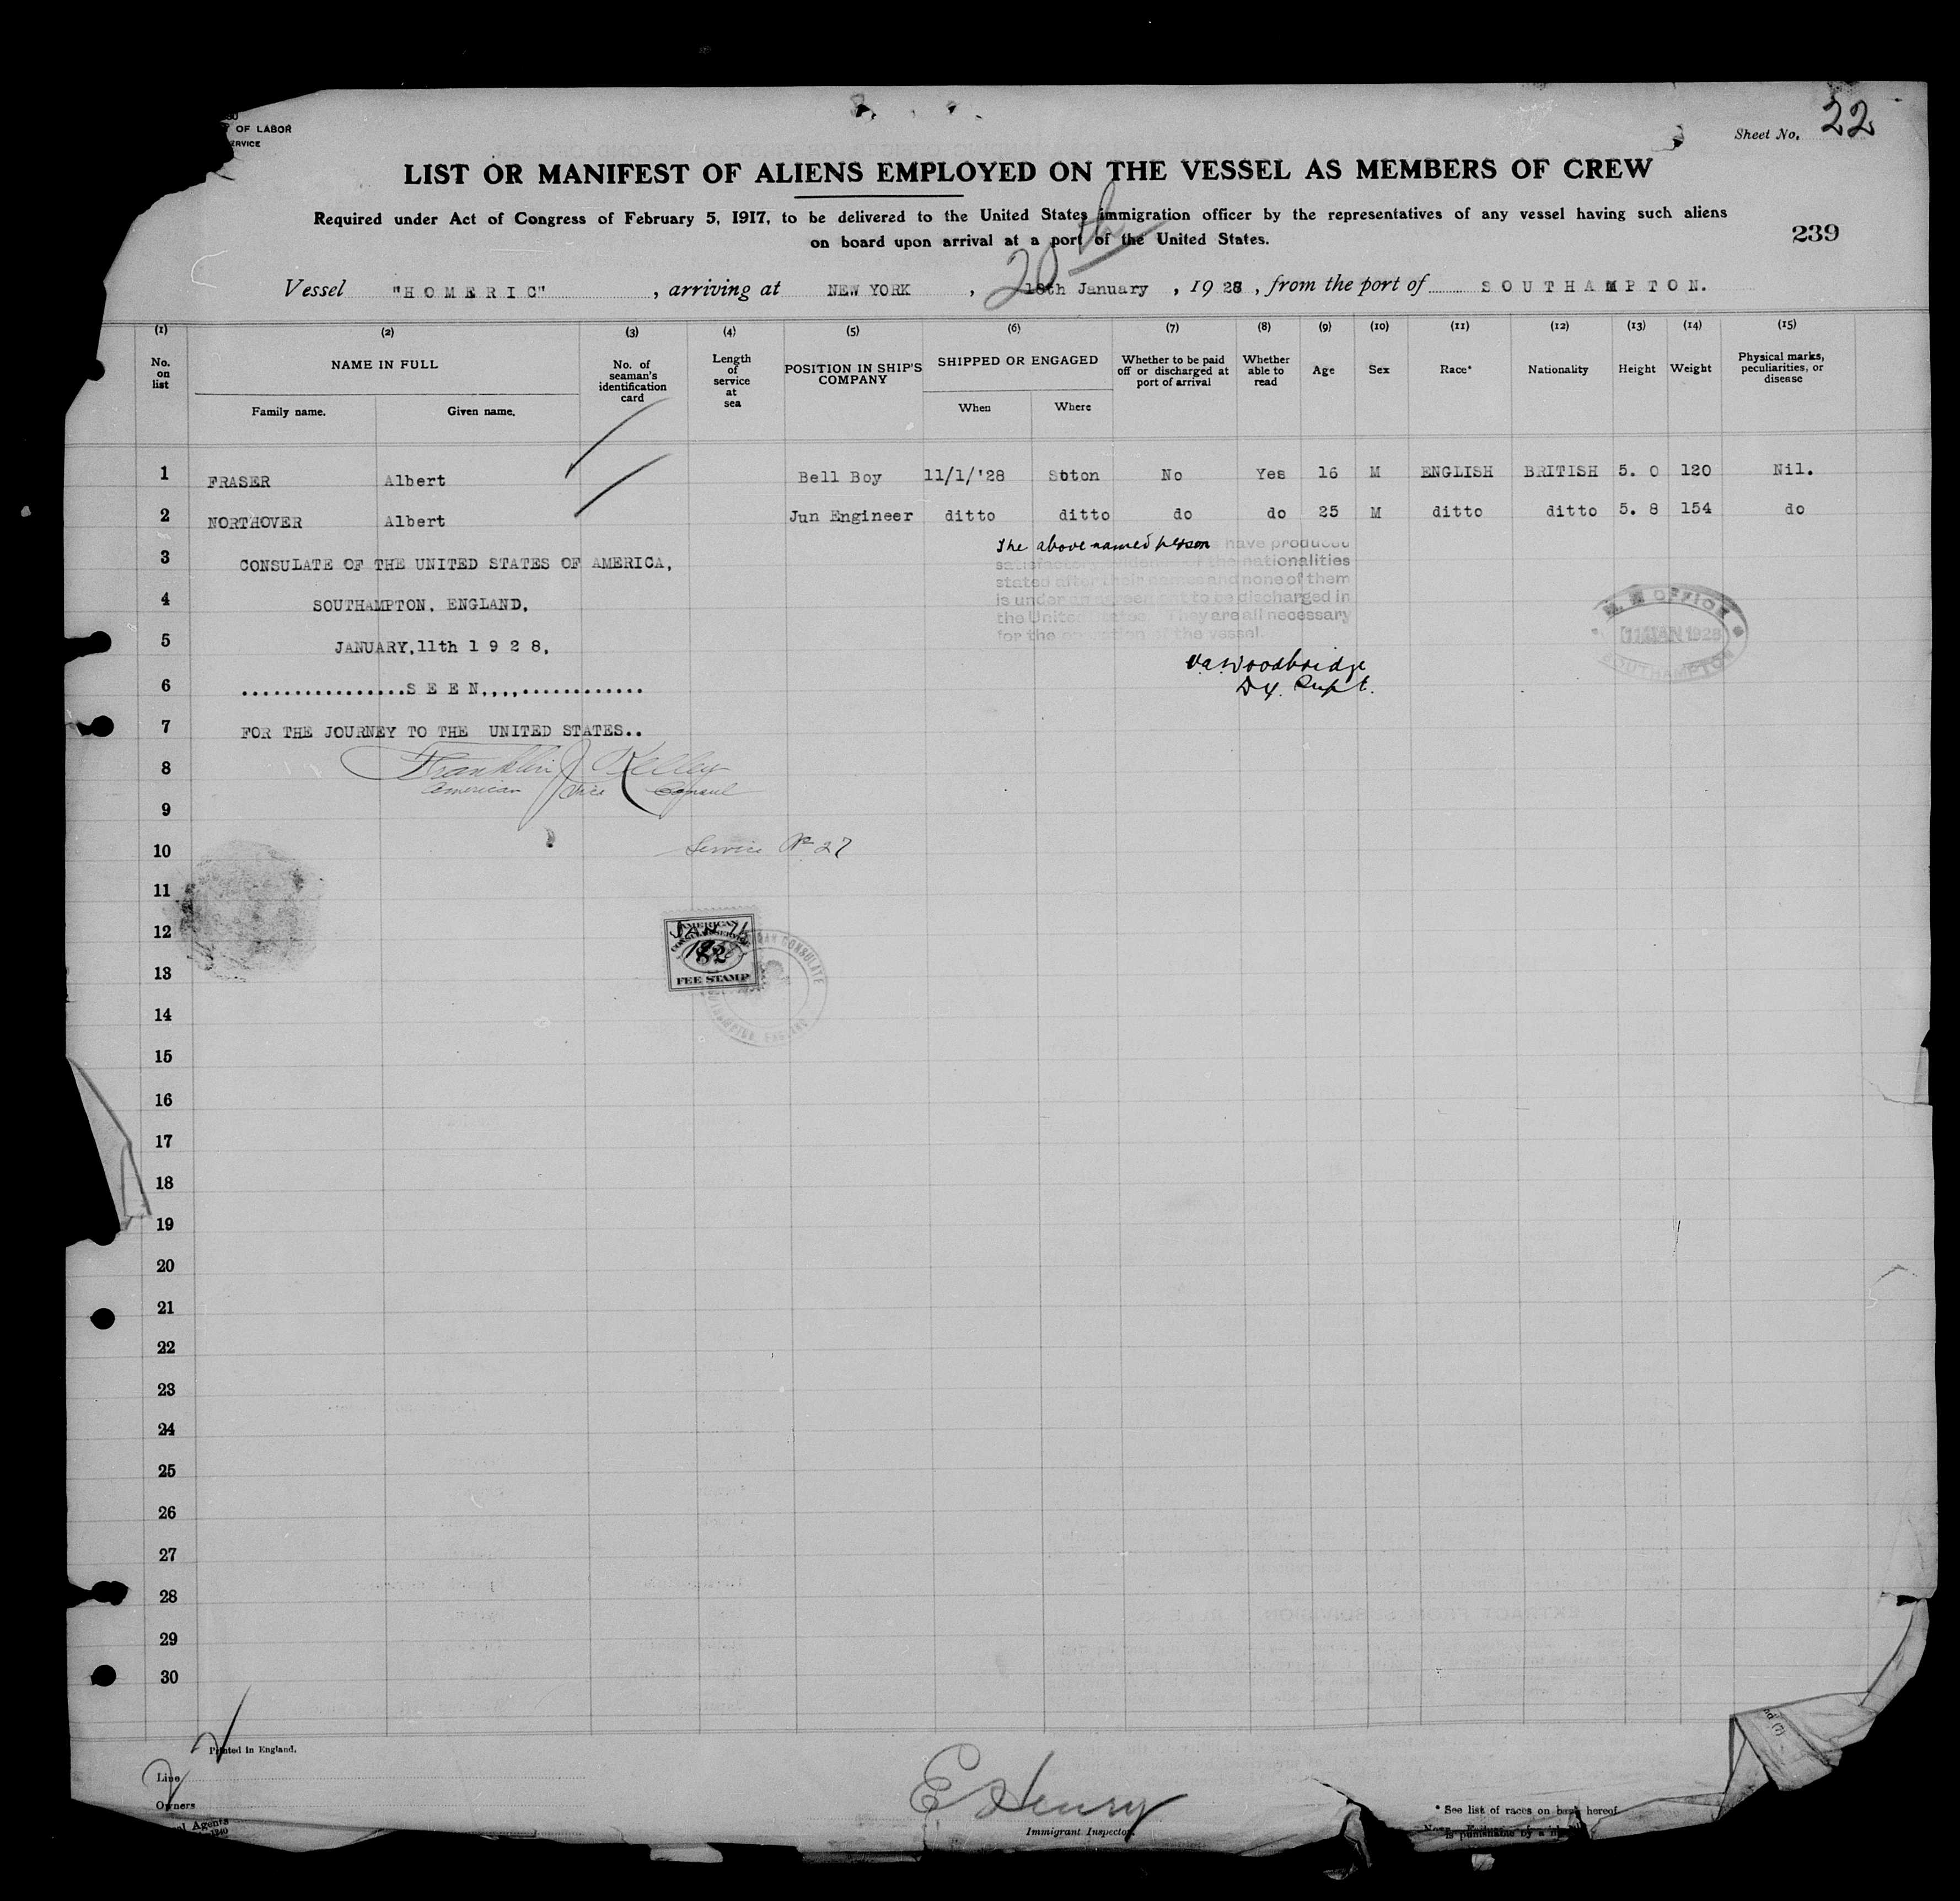 OF LABOR
Sheet No. 22
LIST OR MANIFEST OF ALIENS EMPLOYED ON THE VESSEL AS MEMBERS OF CREW
Required under Act of Congress of February 5, 1917, to be delivered to the United States immigration officer by the representatives of any vessel having such aliens
on board upon arrival at a port of the United States.
239
20th
Vessel "HOMERIC", arriving at NEW YORK, 18th January, 1928, from the port of SOUTHAMPTON.
(1) (2) (3) (4) (5) (6) (7) (8) (9) (10) (11) (12) (13) (14) (15)
No. on list NAME IN FULL No. of seaman's identification card Length of service at sea POSITION IN SHIP'S COMPANY SHIPPED OR ENGAGED Whether to be paid off or discharged at port of arrival Whether able to read Age Sex Race* Nationality Height Weight Physical marks, peculiarities, or disease
Family name. Given name. When Where
1 FRASER Albert Bell Boy 11/1/'28 Soton No Yes 16 M ENGLISH BRITISH 5. 0 120 Nil.
2 NORTHOVER Albert Jun Engineer ditto ditto do do 25 M ditto ditto 5. 8 154 do
The above named person have produced
satisfactory evidence of the nationalities
stated after their names and none of them
is under an agreement to be discharged in
the United States. They are all necessary
for the operation of the vessel.
3 CONSULATE OF THE UNITED STATES OF AMERICA,
4 SOUTHAMPTON, ENGLAND,
M. M OFFICE
11 JAN 1928
SOUTHAMPTON
5 JANUARY,11th 1 9 2 8,
V.A. Woodbridge
Dy. Supt.
6 ................S E E N,,,,............
7 FOR THE JOURNEY TO THE UNITED STATES..
8 Franklin J Kelley
American Vice Consul
9
10 Service No 27
11
12
AMERICAN
CONSULAR SERVICE
FEE STAMP
AMERICAN CONSULATE
SOUTHAMPTON, ENGLAND
13
14
15
16
17
18
19
20
21
22
23
24
25
26
27
28
29
30
Printed in England.
Line
Owners
Agents
E Henry
Immigrant Inspector.
* See list of races on back hereof
is punishable by a